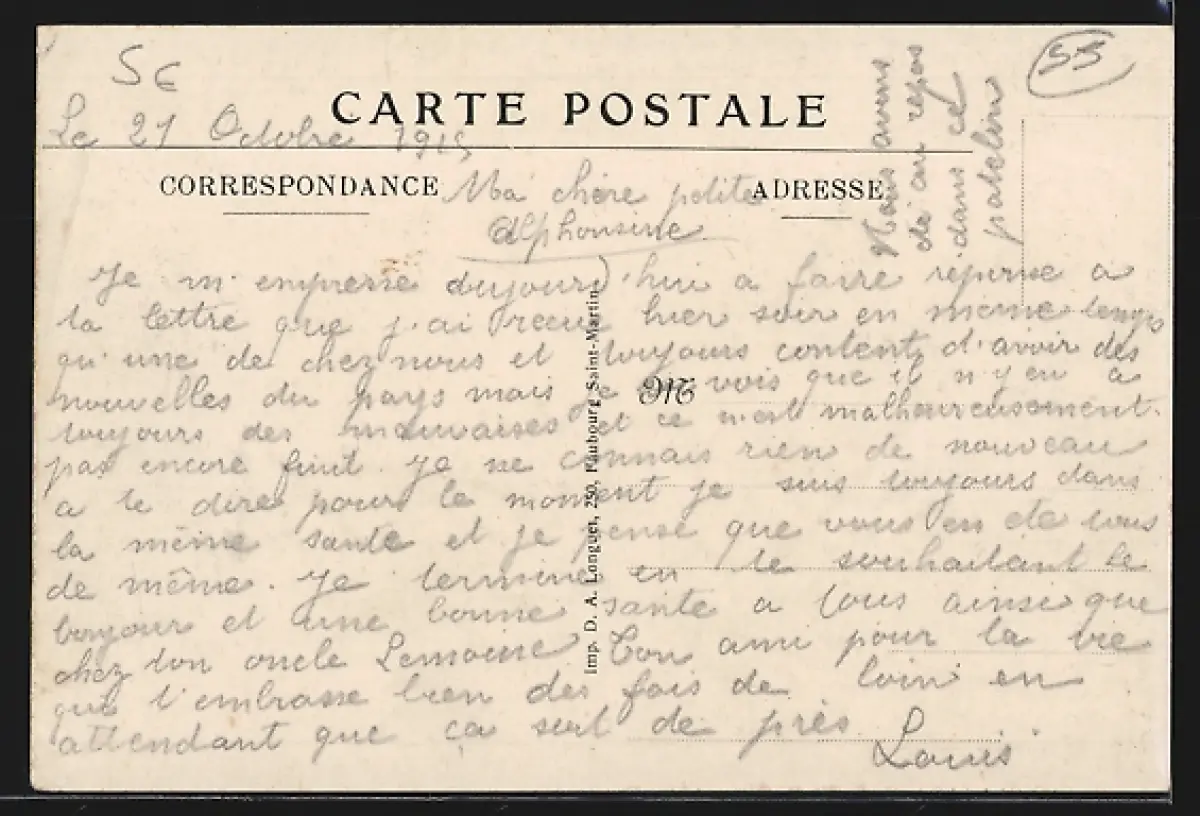 5€
55
CARTE POSTALE
Le 21 Octobre 1915
CORRESPONDANCE
ADRESSE
Ma chère petite
Alphonsine
Je m'empresse dujourd'hui a faire réponse a
ta lettre que j'ai recue hier soir en meme temps
qu'une de chez nous et toujours content d'avoir des
nouvelles du pays mais je vois que il n'y en a
toujours des mauvaises et ce n'est malheureusement
pas encore finit. Je ne connais rien de nouveau
a te dire pour le moment je suis toujours dans
la même santé et je pense que vous en ete tous
de même. Je termine en te souhaitant le
bonjour et une bonne santé a tous ainsi que
chez ton oncle Lemoine Ton ami pour la vie
qui t'embrasse bien des fois de loin en
attendant que ça soit de près
Louis
Nous avons
été au repos
dans ce
patelin
216
Imp. D. A. Longuet, 250, Faubourg Saint-Martin